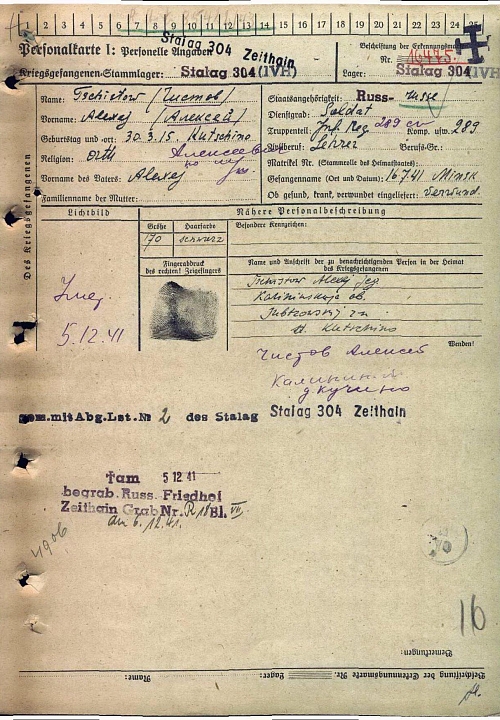 1 2 3 4 5 6 7 8 9 10 11 12 13 14 15 16 17 18 19 20 21 22 23 24 25
Personalkarte I: Personelle Angaben
Stalag 304 Zeithain
Kriegsgefangenen-Stammlager: Stalag 304 (IVH)
Beschriftung der Erkennungsmarke
Nr. 16445
Lager: Stalag 304 (IVH)
Des Kriegsgefangenen
Name: Tschistow (Чистов)
Vorname: Alexej (Алексей)
Geburtstag und -ort: 30.3.15. Kutschino
Religion: orth Алексеев
Vorname des Vaters: Alexej
Familienname der Mutter:
Staatsangehörigkeit: Russ- russe
Dienstgrad: Soldat
Truppenteil: Inf. Reg. 289 Komp. usw. 289
Zivilberuf: Lehrer Berufs-Gr.:
Matrikel Nr. (Stammrolle des Heimatstaates):
Gefangennahme (Ort und Datum): 16.7.41 Minsk
Ob gesund, krank, verwundet eingeliefert: verwund.
Lichtbild
Nähere Personalbeschreibung
Größe Haarfarbe
170 schwarz
Besondere Kennzeichen:
Fingerabdruck
des rechten! Zeigefingers
Name und Anschrift der zu benachrichtigenden Person in der Heimat
des Kriegsgefangenen
Tschistow Alexej
Kalininskaja ob.
d. Kutschino
5.12.41
Wenden!
Чистов Алексей
Калинин.
д. Кучино
gem. mit Abg. Lst. № 2 des Stalag Stalag 304 Zeithain
†am 5 12 41
begrab. Russ. Friedhof
Zeithain Grab Nr. R 18 Bl. VII
am 6.12.41.
4906
16
Bemerkungen:
Beschriftung der Erkennungsmarke Nr. Lager: Name: